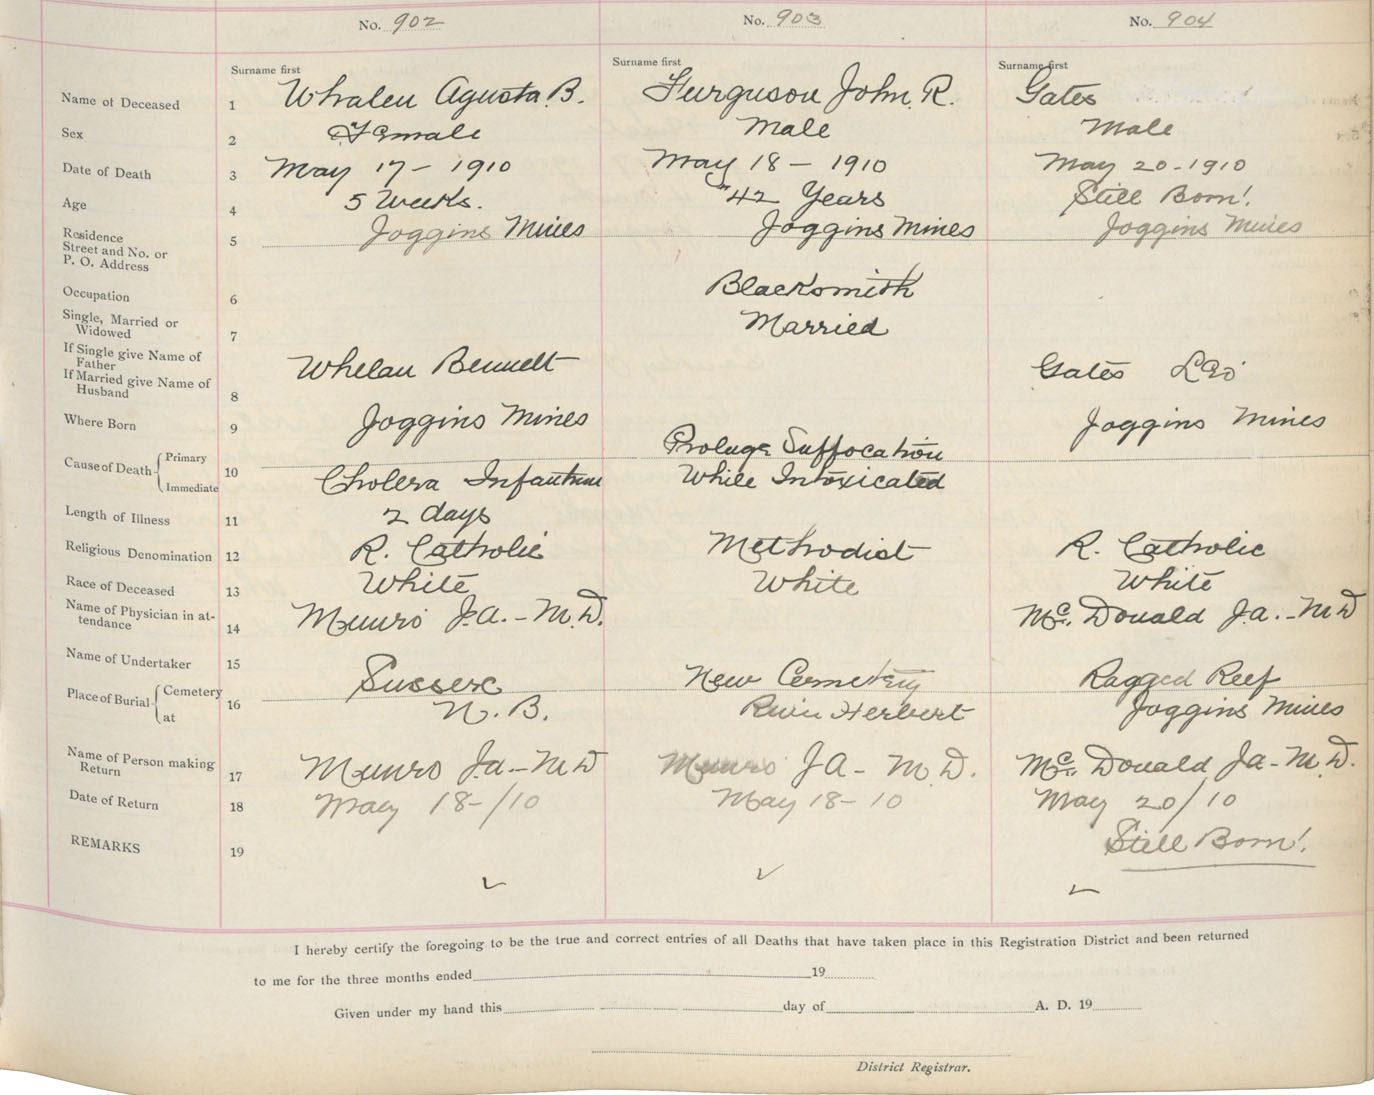 No. 902 No. 903 No. 904
Surname first Surname first Surname first
Name of Deceased 1 Whalen Agusta B. Furguson John. R. Gates
Sex 2 Female Male Male
Date of Death 3 May 17 - 1910 May 18 - 1910 May 20 - 1910
Age 4 5 Weeks. 42 Years Still Born!
Residence
Street and No. or
P. O. Address 5 Joggins Mines Joggins Mines Joggins Mines
Occupation 6 Blacksmith
Single, Married or
Widowed 7 Married
If Single give Name of
Father
If Married give Name of
Husband 8 Whelan Bennett Gates Leo
Where Born 9 Joggins Mines Joggins Mines
Cause of Death Primary Suffocation
Immediate 10 Cholera Infantum While Intoxicated
Length of Illness 11 2 days
Religious Denomination 12 R. Catholic Methodist R. Catholic
Race of Deceased 13 White White White
Name of Physician in at-
tendance 14 Munro J.A. - M.D. McDonald J.a. - M D
Name of Undertaker 15
Place of Burial Cemetery Sussex New Cemetery Ragged Reef
at 16 N. B. Herbert Joggins Mines
Name of Person making
Return 17 Munro Ja - M D Munro J A - M. D. McDonald Ja - M. D.
Date of Return 18 May 18 - /10 May 18 - 10 May 20/10
REMARKS 19 Still Born!
✓ ✓ ✓
I hereby certify the foregoing to be the true and correct entries of all Deaths that have taken place in this Registration District and been returned
to me for the three months ended 19
Given under my hand this day of A. D. 19
District Registrar.